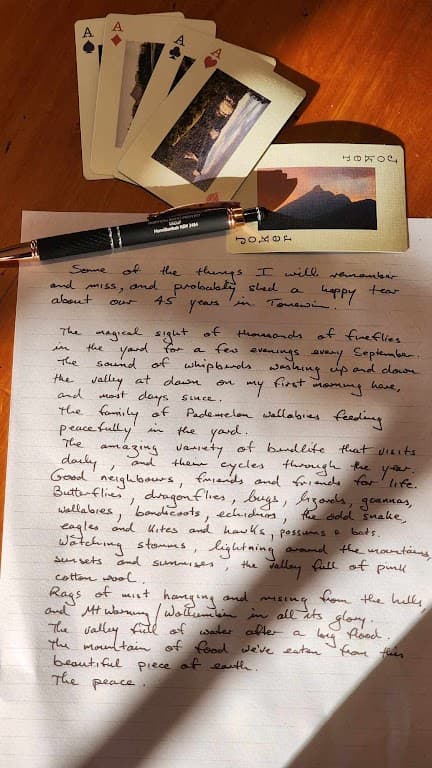 A
A
A
A
Joker
Joker
Murwillumbah NSW 2484
Some of the things I will remember
and miss, and probably shed a happy tear
about our 45 years in Tomewin.
The magical sight of thousands of fireflies
in the yard for a few evenings every September.
The sound of whipbirds washing up and down
the valley at dawn on my first morning here,
and most days since.
The family of Pademelon wallabies feeding
peacefully in the yard.
The amazing variety of birdlife that visits
daily, and their cycles through the year.
Good neighbours, friends and friends for life.
Butterflies, dragonflies, bugs, lizards, goannas,
wallabies, bandicoots, echidnas, the odd snake,
eagles and kites and hawks, possums & bats.
Watching storms, lightning around the mountains,
sunsets and sunrises, the valley full of pink
cotton wool.
Rags of mist hanging and rising from the hills,
and Mt Warning/Wollumbin in all its glory.
The valley full of water after a big flood.
The mountain of food we've eaten from this
beautiful piece of earth.
The peace.